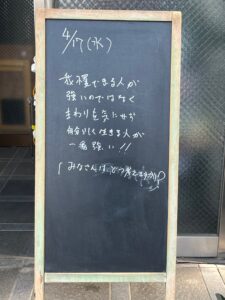 4/17(水)
我慢できる人が
強いのではなく
まわりを気にせず
自分らしく生きる人が
一番強い!!
みなさんはどう考えますか?